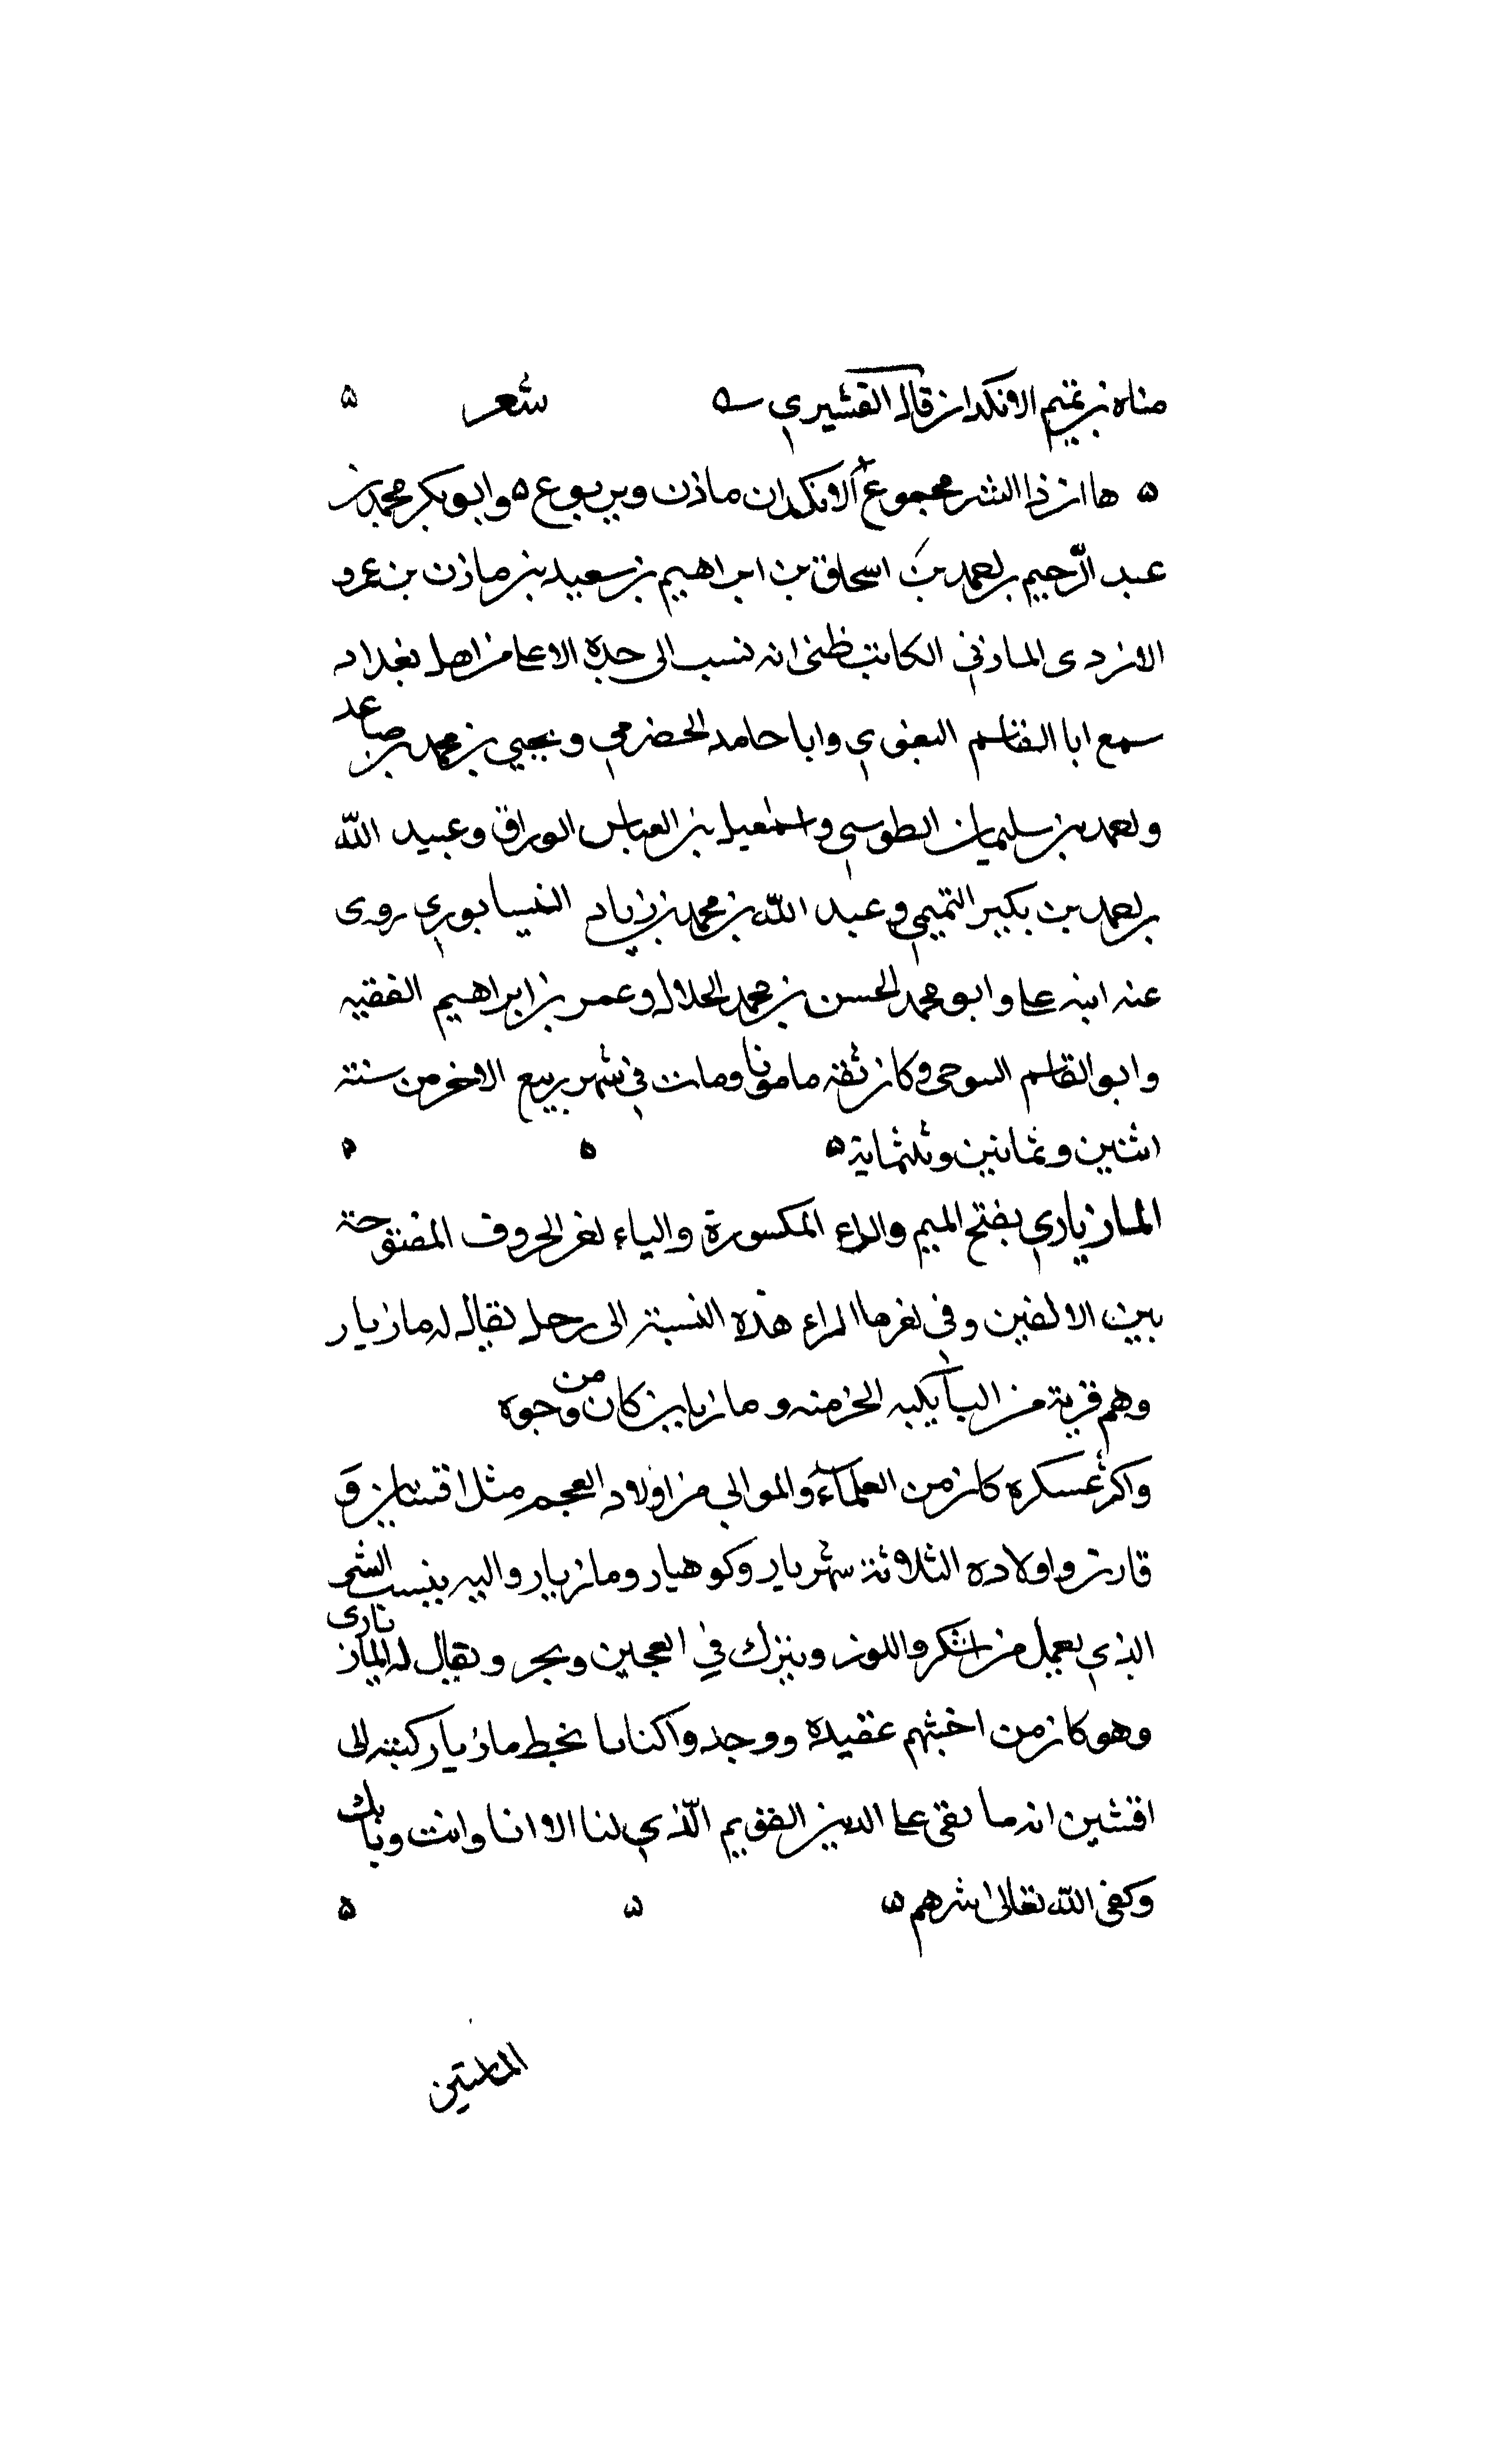 مناه بن تميم الانكدان قال القشيري ٥ شعر ٥
٥ هاان ذا الشر مجموع الانكدان مازن ويربوع ٥ وابو بكر محمد بن
عبد الرحيم بن احمد بن اسحاق بن ابراهيم بن سعيد بن مازن بن عمرو
الازدي المازني الكاتب ظني انه نسب الى جده الاعلى من اهل بغداد
سمع ابا القاسم البغوي وابا حامد الحضرمي ويحيي بن محمد بن صاعد
واحمد بن سليمان الطوسي واسمعيل بن العباس الوراق وعبيد الله
بن احمد بن بكير التميمي وعبد الله بن محمد بن زياد النيسابوري روى
عنه ابنه على وابو محمد الحسن بن محمد الخلال وعمر بن ابراهيم الفقيه
وابو القاسم السوحى وكان ثقه مامونا ومات في شهر ربيع الاخر من سنة
اثنين وثمانين وثلثماية ٥ ٥ ٥
المازياري بفتح الميم والراء المكسورة والياء اخر الحروف المفتوحة
بين الالفين وفي اخرها الراء هذه النسبة الى رجل يقال له مازيار
وهم قرية من البابكيه الخرمنه ومازيار كان من وجوه
واكثر عسكره كان من العلماء والموالي من اولاد العجم مثل افشين و
قارن واولاده الثلاثة شهريار وكوهيار ومازيار واليه ينسب الشى
الذي يعمل من السكر واللوز وينزك في العجين ويجر ويقال له المازيارى
وهو كان من اخبثهم عقيدة ووجدوا كتابا بخط مازيار كتبه الى
افشين انه ما بقى على الدين القويم الذي لنا الا انا وانت وبابك
وكفى الله تعالى شرهم ٥ ٥ ٥